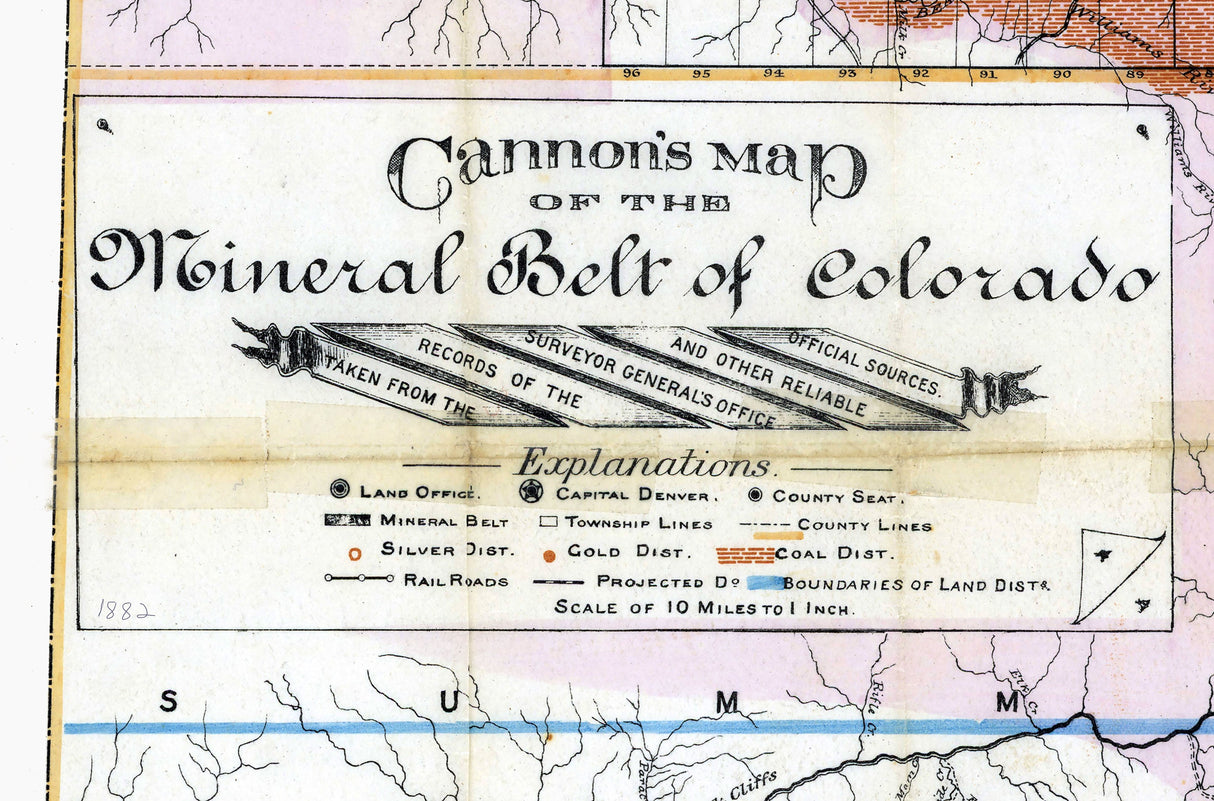 Williams
96 95 94 93 92 91 90 89
Williams
Cannon's Map
OF THE
Mineral Belt of Colorado
TAKEN FROM THE
RECORDS OF THE
SURVEYOR GENERAL'S OFFICE
AND OTHER RELIABLE
OFFICIAL SOURCES.
Explanations.
LAND OFFICE. CAPITAL DENVER. COUNTY SEAT.
MINERAL BELT TOWNSHIP LINES COUNTY LINES
SILVER DIST. GOLD DIST. COAL DIST.
RAIL ROADS PROJECTED Dº BOUNDARIES OF LAND DISTS
SCALE OF 10 MILES TO 1 INCH.
1882
Elk Cr.
S U M M
Rifle Cr.
Cliffs